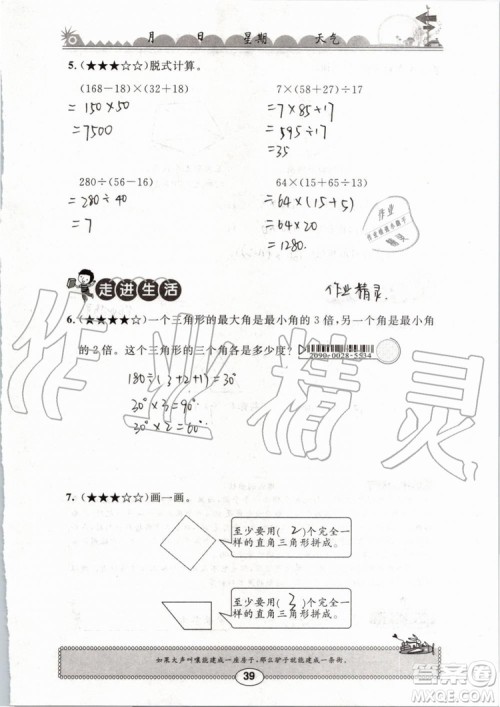 月 日 星期 天气
5. (★★★☆☆)脱式计算。
(168-18)×(32+18) 7×(58+27)÷17
=150×50 =7×85÷17
=7500 =595÷17
=35
280÷(56-16) 64×(15+65÷13)
=280÷40 =64×(15+5)
=7 =64×20
=1280.
作业
精灵
走进生活
作业精灵
6. (★★★★☆)一个三角形的最大角是最小角的3倍,另一个角是最小角
的2倍。这个三角形的三个角各是多少度?
2090-0028-5534
180÷(3+2+1)=30°
30°×3=90°
30°×2=60°
作业精灵
7. (★★★☆☆)画一画。
至少要用( 2 )个完全一
样的直角三角形拼成。
至少要用( 3 )个完全一
样的直角三角形拼成。
如果大声叫嚷能建成一座房子,那么驴子就能建成一条街。
39
答案圈
MXQE.COM